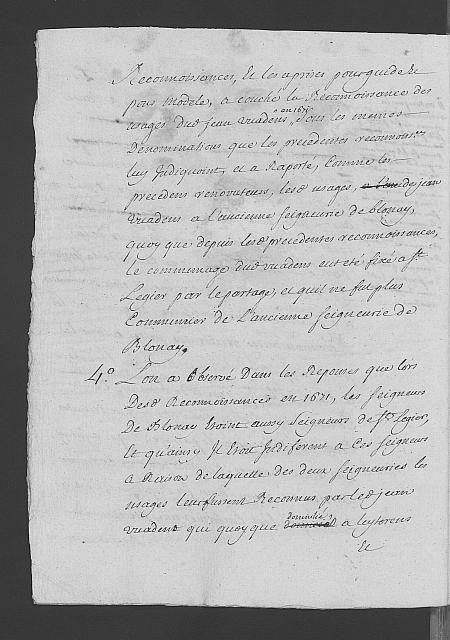 Reconnoissances, et les a prises pour guide et
pour modele, a couché la Reconnoissance des
usages dud.t jean vuadens en 1671 sous les memes
Denominations que les precedentes reconnoiss.ces
luy Indiquoint, et a Raporté, Comme les
precedens renovateurs, lesd.s usages, dud.t jean
vuadens a l'ancienne seigneurie de blonay,
quoy que depuis lesd.s precedentes reconnoissances,
le communage dud.t vuadens eut eté fixé a st
Legier par le partage, et qu'il ne fut plus
Communier de L'ancienne seigneurie de
Blonay.
4.o L'on a Observé Dans les Reponses que lors
Desd.s Reconnoissances en 1671, les seigneurs
de Blonay etoint aussy seigneurs de st Legier,
Et qu'ainsy Il etoit Indiferent a Ces seigneurs
a Raison de laquelle des deux seigneuries les
usages leur fussent Reconnus par led.t jean
vuadens qui quoy que domicilié a leytorens
et